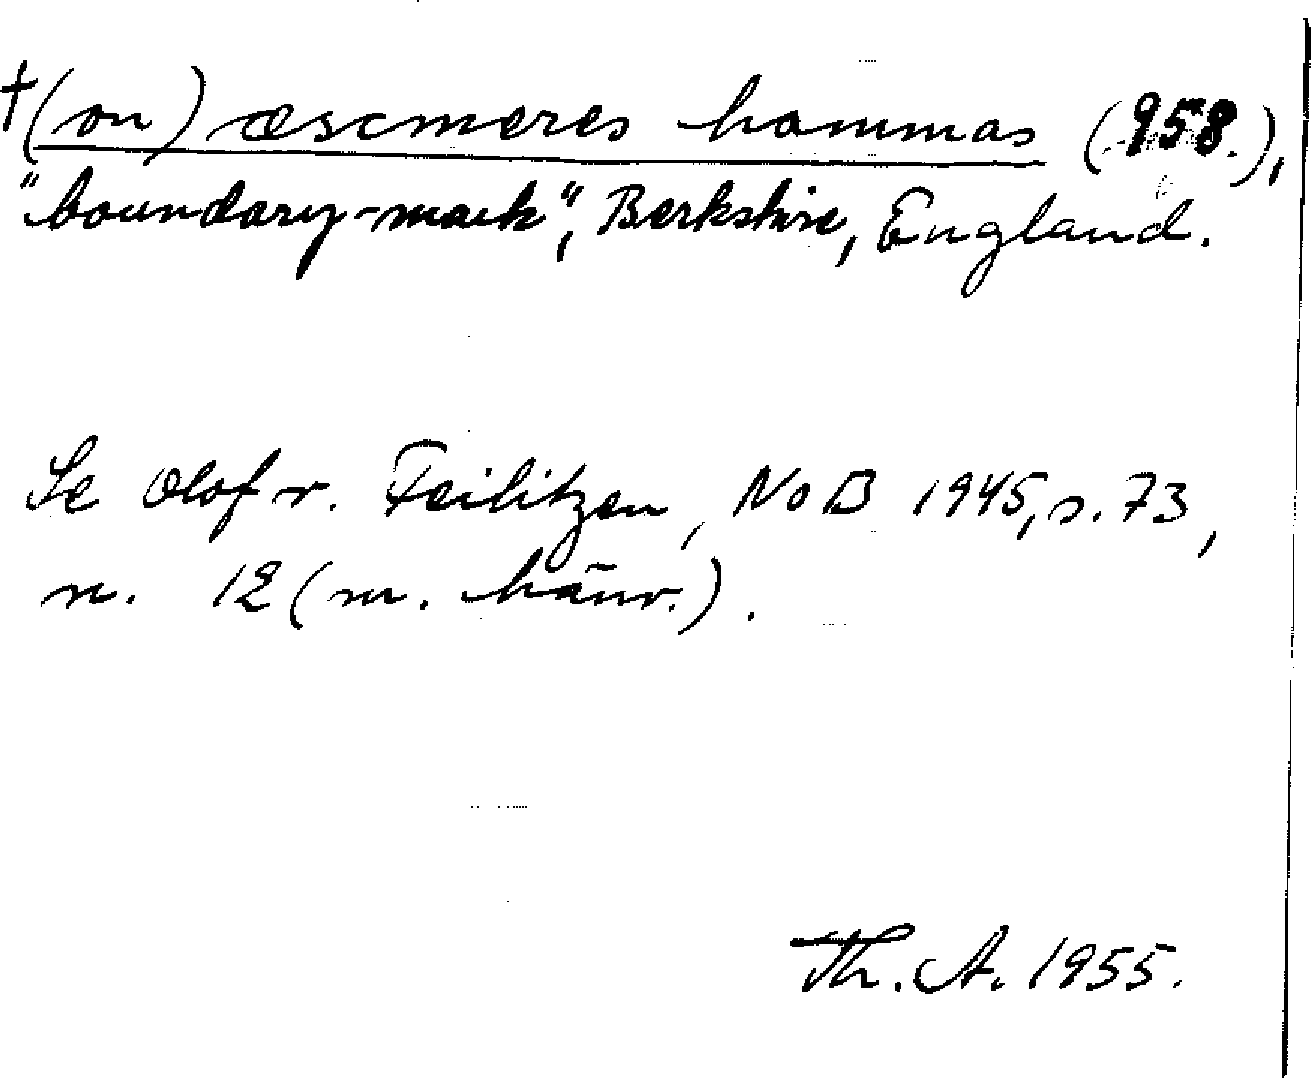 †(on) æscmeres hammas (958.),
"boundary-mark", Berkshire, England.
Se Olof v. Feilitzen, NoB 1945, s. 73,
n. 12 (m. hänv.).
Th. A. 1955.